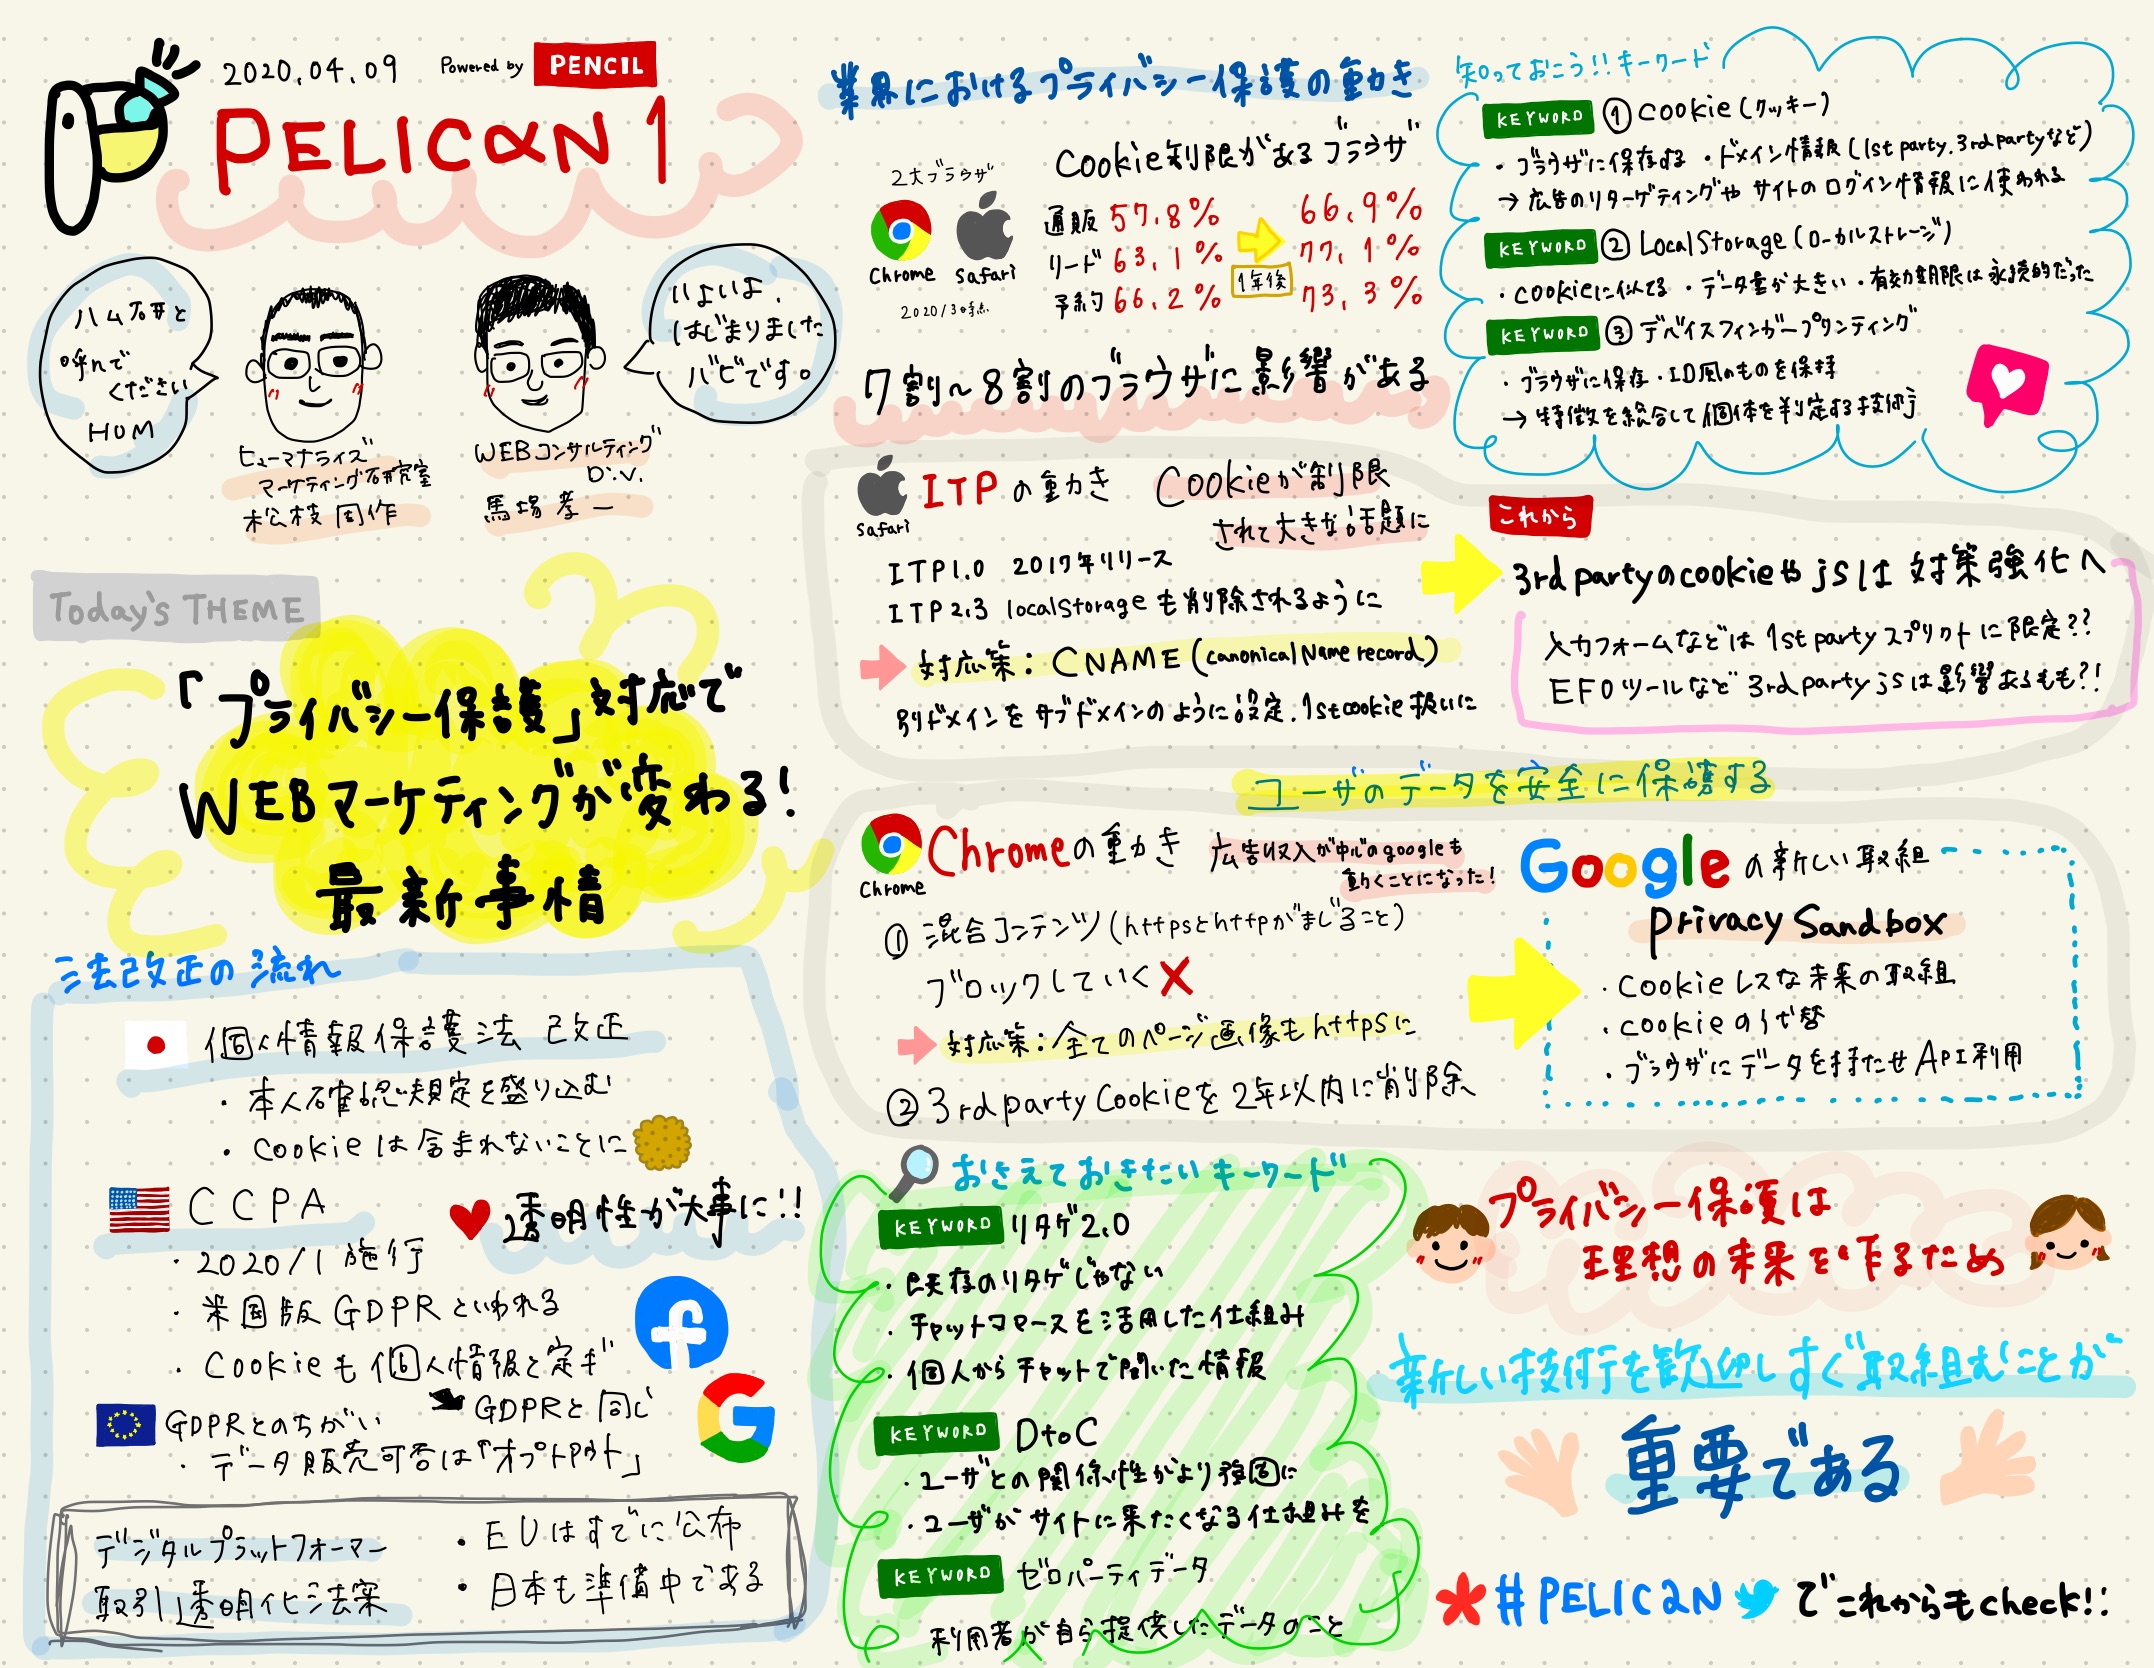 2020.04.09
Powered by PENCIL
PELICAN 1
ハム研と
呼んで
ください
HUM
ヒューマナライズ
マーケティング研究室
松枝 周作
WEBコンサルティング
Div.
馬場 孝一
いよいよ、
はじまりました
ババです。
Today's THEME
「プライバシー保護」対応で
WEBマーケティングが変わる!
最新事情
法改正の流れ
個人情報保護法 改正
・本人確認規定を盛り込む
・Cookieは含まれないことに
CCPA
♥透明性が大事に!!
・2020/1 施行
・米国版GDPRといわれる
・Cookieも個人情報と定ギ
GDPRと同じ
GDPRとのちがい
・データ販売可否は「オプトアウト」
デジタルプラットフォーマー
取引透明化法案
・EUはすでに公布
・日本も準備中である
業界におけるプライバシー保護の動き
Cookie制限があるブラウザ
2大ブラウザ
Chrome Safari
2020/3時点
通販 57.8% 66.9%
リード 63.1% 77.1%
予約 66.2% 73.3%
1年後
7割〜8割のブラウザに影響がある
知っておこう!!キーワード
KEYWORD ① Cookie(クッキー)
・ブラウザに保存する ・ドメイン情報(1st party.3rd partyなど)
→広告のリターゲティングや サイトのログイン情報に使われる
KEYWORD ② LocalStorage(ローカルストレージ)
・cookieに似てる ・データ量が大きい ・有効期限は永続的だった
KEYWORD ③ デバイスフィンガープリンティング
・ブラウザに保存・ID風のものを保持
→特徴を総合して個体を判定する技術
Safari
ITPの動き
Cookieが制限
されて大きな話題に
ITP1.0 2017年リリース
ITP2.3 localStorageも削除されるように
対応策:CNAME(canonical Name record)
別ドメインをサブドメインのように設定.1stcookie扱いに
これから
3rd partyのcookieやjsは対策強化へ
入力フォームなどは1st partyスプリクトに限定??
EFOツールなど3rd party jsは影響あるもも?!
ユーザのデータを安全に保護する
Chrome
Chromeの動き
広告収入が中心のgoogleも
動くことになった!
① 混合コンテンツ(httpsとhttpがまじること)
ブロックしていく✕
対応策:全てのページ画像もhttpsに
② 3rd party Cookieを2年以内に削除
Googleの新しい取組
Privacy Sandbox
・Cookieレスな未来の取組
・cookieの代替
・ブラウザにデータを持たせAPI利用
おさえておきたいキーワード
KEYWORD リタゲ2.0
・既存のリタゲじゃない
・チャットコマースを活用した仕組み
・個人からチャットで聞いた情報
KEYWORD DtoC
・ユーザとの関係性がより強固に
・ユーザがサイトに来たくなる仕組みを
KEYWORD ゼロパーティデータ
利用者が自ら提供したデータのこと
プライバシー保護は
理想の未来を作るため
新しい技術を歓迎しすぐ取組むことが
重要である
#PELICANでこれからもcheck!!